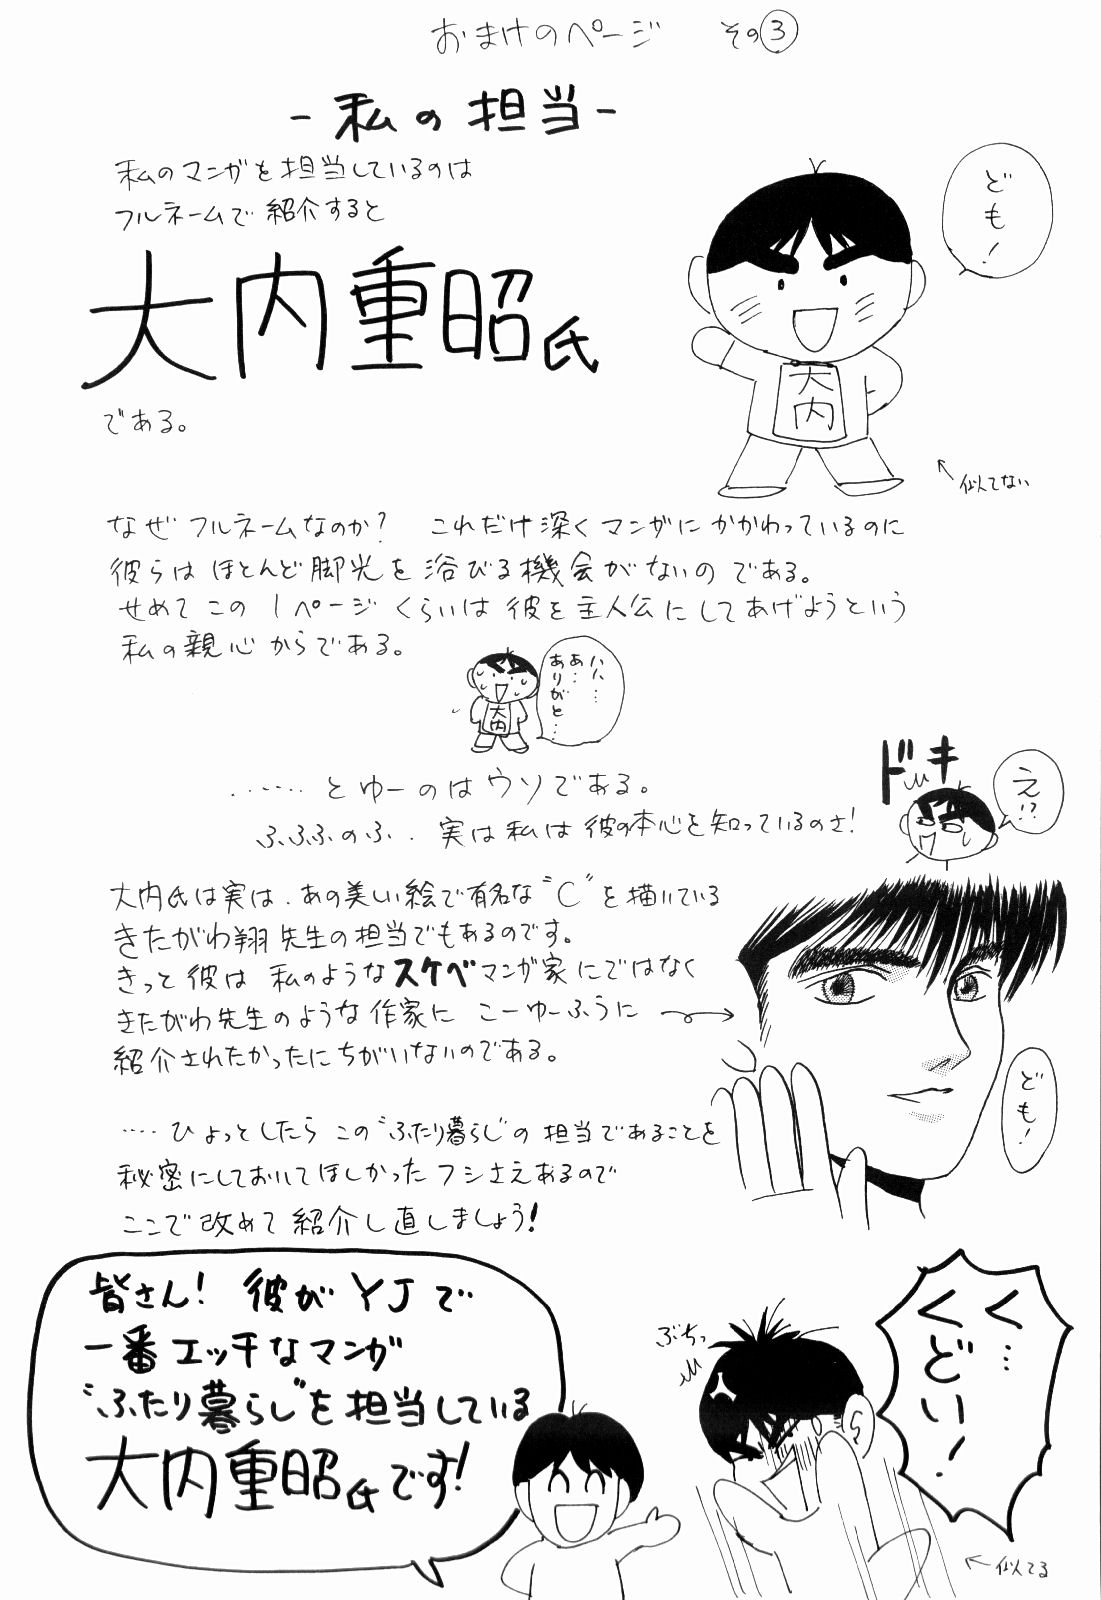 おまけのページ その③
-私の担当-
私のマンガを担当しているのは
フルネームで紹介すると
大内重昭氏
である。
ども!
大内
←似てない
なぜフルネームなのか? これだけ深くマンガにかかわっているのに
彼らはほとんど脚光を浴びる機会がないのである。
せめてこの1ページくらいは彼を主人公にしてあげようという
私の親心からである。
ハハ…
あ…
ありがと…
大内
……とゆーのはウソである。
ふふふのふ.. 実は私は彼の本心を知っているのさ!
ドキ
え!?
大内氏は実は、あの美しい絵で有名な“C”を描いている
きたがわ翔先生の担当でもあるのです。
きっと彼は私のようなスケベマンガ家にではなく
きたがわ先生のような作家にこーゆーふうに
紹介されたかったにちがいないのである。
ども!
‥‥ひょっとしたらこの“ふたり暮らし”の担当であることを
秘密にしておいてほしかったフシさえあるので
ここで改めて紹介し直しましょう!
皆さん! 彼がYJで
一番エッチなマンガ
“ふたり暮らし”を担当している
大内重昭氏です!
ぶちっ
く…
くどい!
←似てる